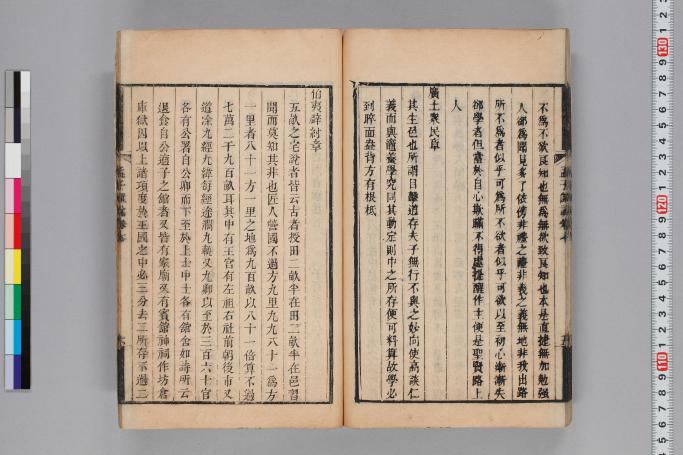 不爲不欲良知也無爲無欲致良知也本是直捷無加勉强
人卻爲聞見多了依傍非禮之禮非義之義無地非我出路
所不爲者似乎可爲所不欲者似乎可欲以至初心漸漸失
卻學者但當於自心欺瞞不得處提醒作主便是聖賢路上
人
廣土衆民章
其生色也所謂目擊道存夫子無行不與之妙向使高談仁
義而與道養學究同其動定則中之所存便可料算故學必
到睟面盎背方有根柢
伯夷辟紂章
五畝之宅說者皆云古者授田二畝半在田二畝半在邑習
聞而莫知其非也匠人營國不過方九里九九八十一爲方
一里者八十一方一里之地爲九百畝以八十一倍算不過
七萬二千九百畝耳其中有王宮有左祖右社前朝後市又
道涂九經九緯每經涂濶九軌又九卿以至於三百六十官
各有公署自公卿而下至於上士中士各有舘舍如詩所云
退食自公適子之舘者又皆有家廟又有賓舘神祠作坊倉
庫獄囚以上諸項度於王國之中必三分去二所存不過二